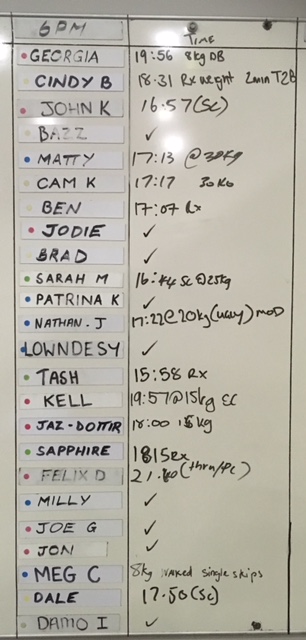 6PM TIME
GEORGIA 19:56 8kg DB
CINDY B 18.31 Rx weight 2min T2B
JOHN K 16.57 (SC)
BAZZ ✓
MATTY 17:13 @30kg
CAM K 17:17 30KG
BEN 17:07 Rx
JODIE ✓
BRAD ✓
SARAH M 16:44 SC @25kg
PATRINA K ✓
NATHAN.J 17:22@20kg MOD
LOWNDESY ✓
TASH 15:58 RX
KELL 19:57@15kg SC
JAZ-DOTTIR 18:00 15kg
SAPPHIRE 1815Rx
FELIX D
MILLY ✓
JOE G ✓
JON ✓
MEG C 8kg single skips
DALE 17.50 (SC)
DAMO I ✓